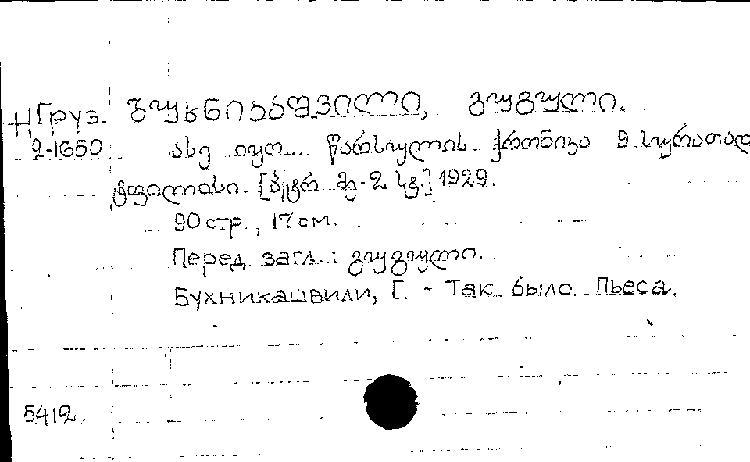 НГруз. ბუხნიკაშვილი, გუგული.
2-1650 ასე იყო... წარსულის ქრონიკა 9 სურათად
ტფილისი. 1929.
90 стр., 17 см.
Перед загл.: გუგული.
Бухникашвили, Г. - Так было. Пьеса.
5412